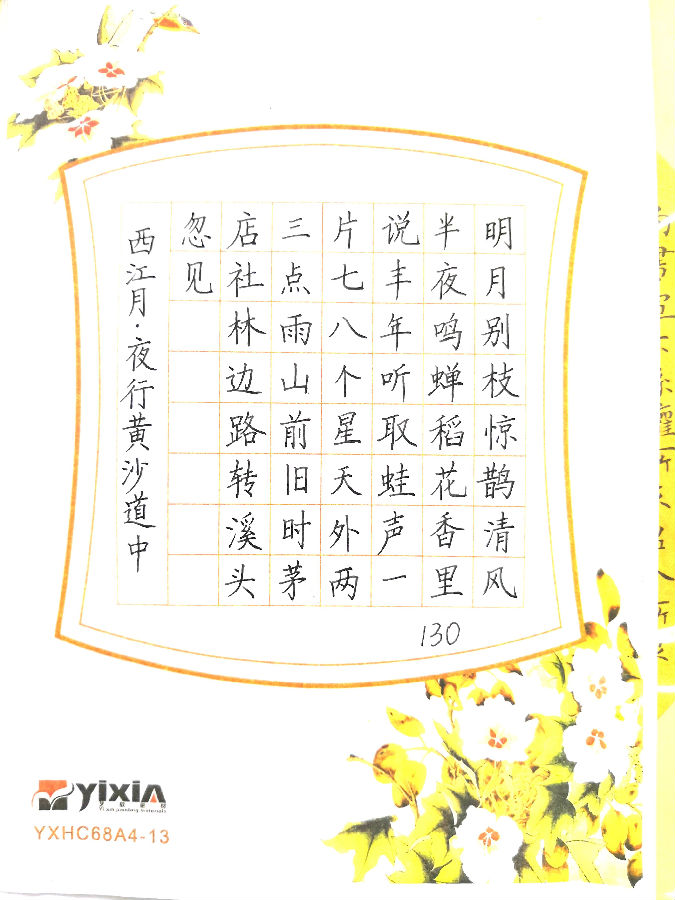 明月别枝惊鹊清风
半夜鸣蝉稻花香里
说丰年听取蛙声一
片七八个星天外两
三点雨山前旧时茅
店社林边路转溪头
忽见
西江月·夜行黄沙道中
130
yixin
Yi xin painting materials
YXHC68A4-13